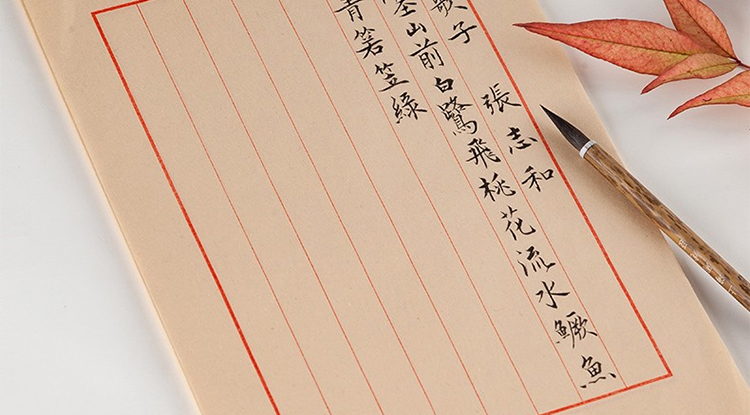 歌子 張志和
塞山前白鷺飛桃花流水鱖魚
青箬笠綠